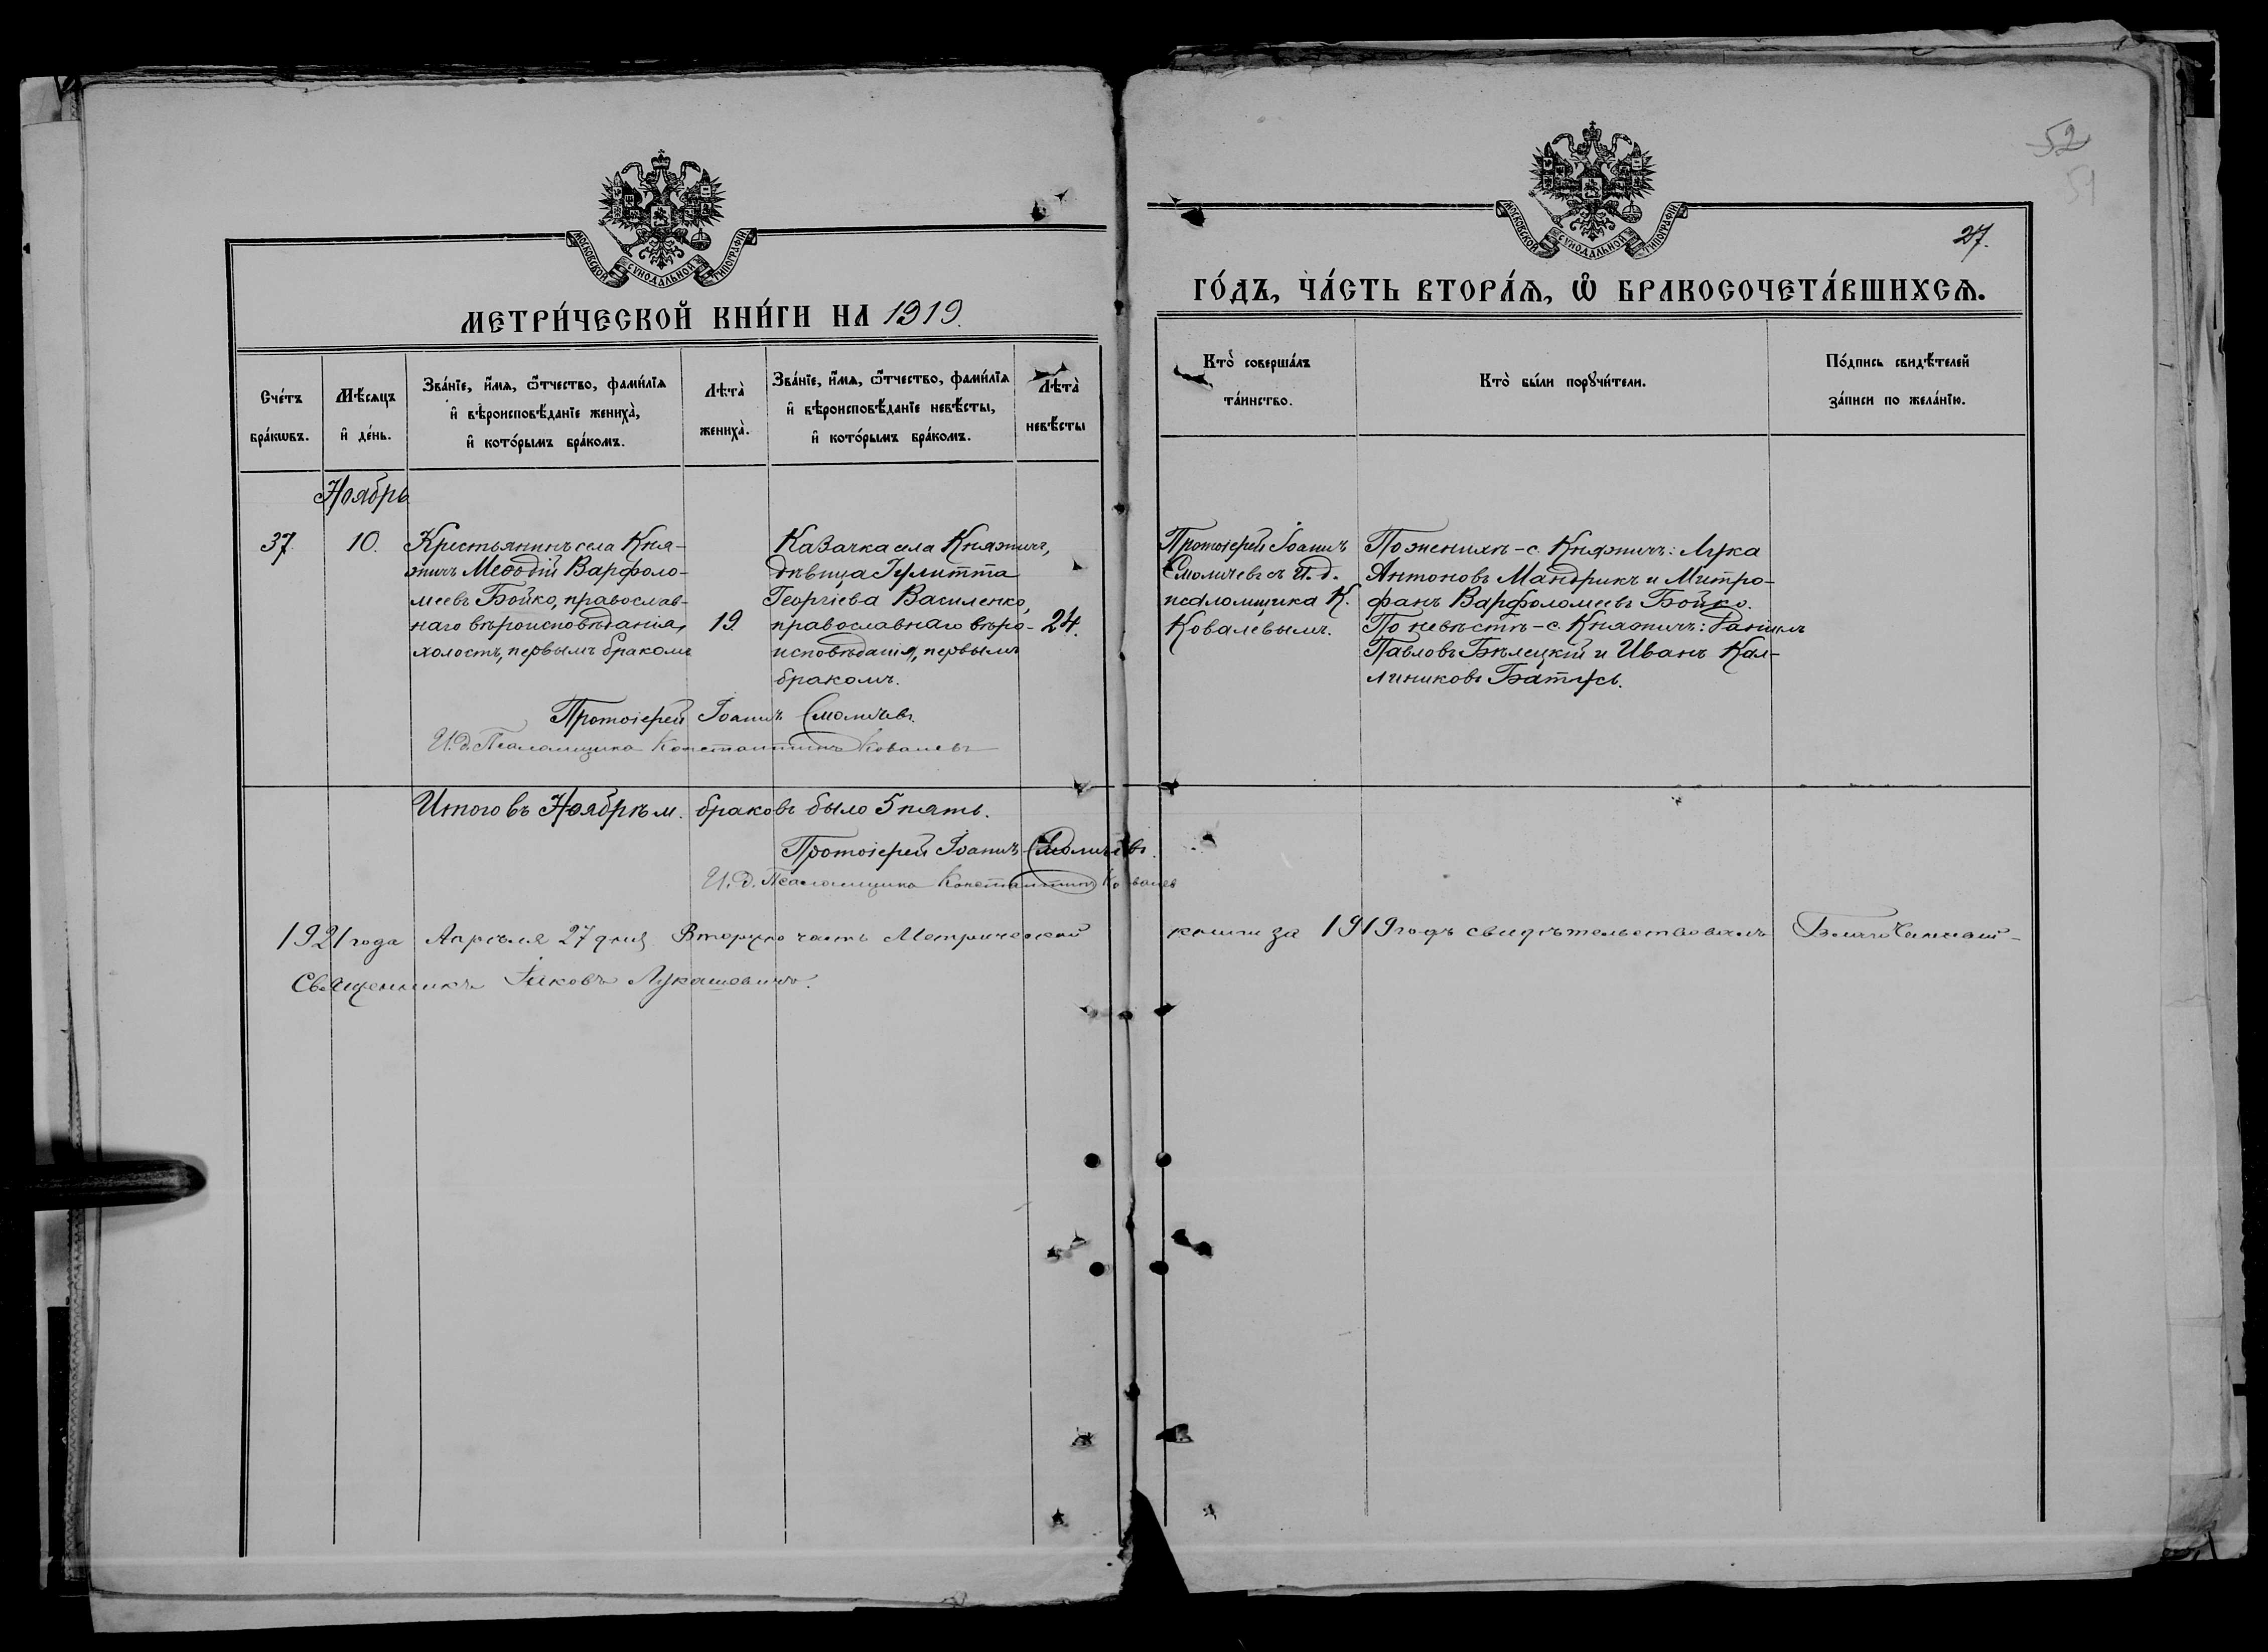 52
51
МОСКОВСКОЙ СѴНОДАЛЬНОЙ ТИПОГРАФІИ
МОСКОВСКОЙ СѴНОДАЛЬНОЙ ТИПОГРАФІИ
27.
МЕТРИ́ЧЕСКОЙ КНИ́ГИ НА 1919.
ГО́ДЪ, ЧА́СТЬ ВТОРА́Ѧ, Ѽ БРАКОСОЧЕТА́ВШИХСѦ.
Сче́тъ
бра́кѡвъ.
Мѣ́сѧцъ
и҆ де́нь.
Зва́нїе, и҆́мѧ, ѻ҆́тчество, фами́лїѧ
и҆ вѣроисповѣ́данїе жениха̀,
и҆ кото́рымъ бра́комъ.
Лѣта̀
жениха̀.
Зва́нїе, и҆́мѧ, ѻ҆́тчество, фами́лїѧ
и҆ вѣроисповѣ́данїе невѣ́сты,
и҆ кото́рымъ бра́комъ.
Лѣта̀
невѣ́сты
Кто̀ соверша́лъ
та́инство.
Кто̀ бы́ли порꙋчи́тели.
По́дпись свидѣ́телей
за́писи по жела́нїю.
Ноябрь
37.
10.
Крестьянинъ села Кня-
жичъ Меѳодій Варфоло-
меевъ Бойко, православ-
наго вѣроисповѣданія,
холостъ, первымъ бракомъ
19.
Казачка села Княжичъ,
дѣвица Іулитта
Георгіева Василенко,
православнаго вѣро-
исповѣданія, первымъ
бракомъ.
24.
Протоіерей Іоаннъ
Смоличевъ съ И.д.
псаломщика К.
Ковалевымъ.
По женихѣ - с. Княжичъ: Лука
Антоновъ Мандрикъ и Митро-
фанъ Варфоломеевъ Бойко.
По невѣстѣ - с. Княжичъ: Даніилъ
Павловъ Бѣлецкій и Иванъ Кал-
линиковъ Батусь.
Протоіерей Іоаннъ Смоличевъ
И.д. Псаломщика Константинъ Ковалевъ
Итого въ Ноябрѣ м. браковъ было 5 пять.
Протоіерей Іоаннъ Смоличевъ.
И.д. Псаломщика Константинъ Ковалев
1921 года Апрѣля 27 дня Вторую часть Метрической книги за 1919 годъ свидѣтельствовалъ
Священникъ Іаковъ Лукашевичъ.